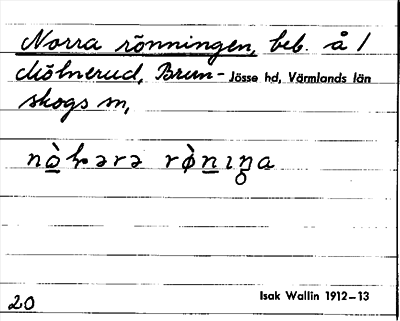 Norra rönningen, beb. å /
Mölnerud, Brun- Jösse hd, Värmlands län
skogs sn,
Isak Wallin 1912–13
20